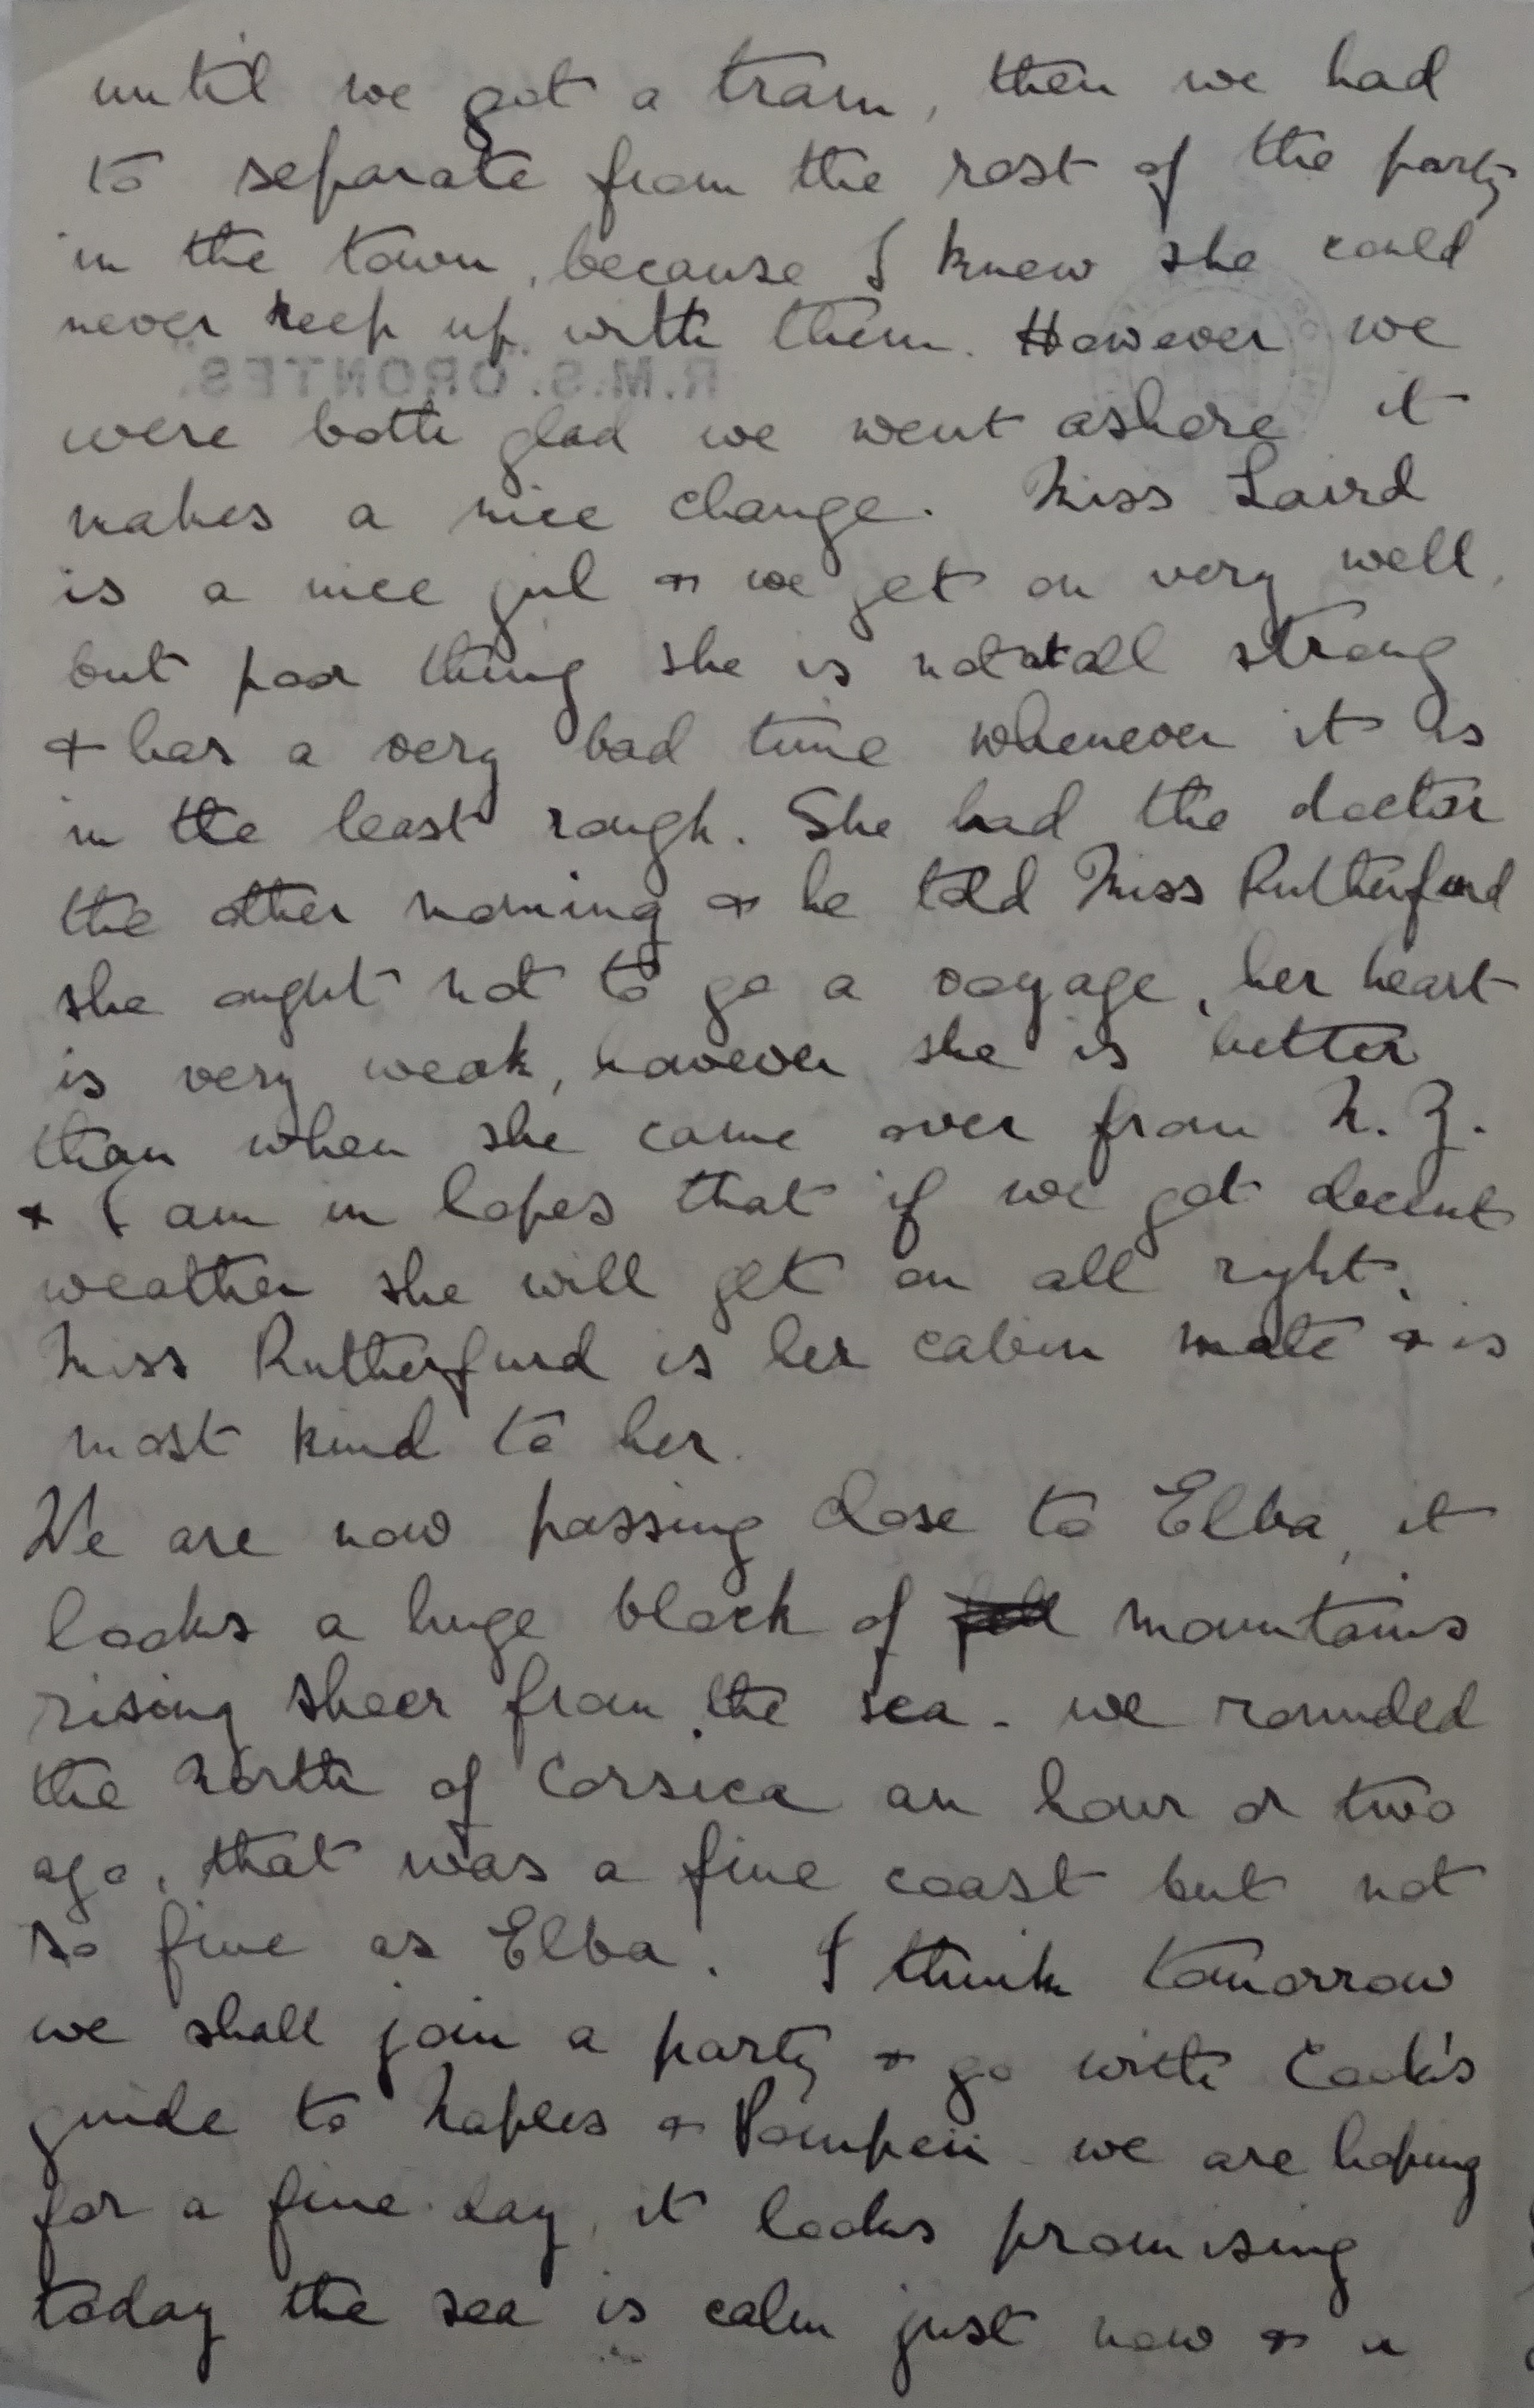 until we got a tram, then we had
to separate from the rest of the party
in the town, because I knew she could
never keep up with them. However we
R.M.S. ORONTES.
were both glad we went ashore it
makes a nice change. Miss Laird
is a nice girl & we get on very well,
but poor thing she is not at all strong
& has a very bad time whenever it is
in the least rough. She had the doctor
the other morning & he told Miss Rutherfurd
she ought not to go a voyage, her heart
is very weak, however she is better
than when she came over from N. Z.
& I am in hopes that if we get decent
weather she will get on all right.
Miss Rutherfurd is her cabin mate & is
most kind to her.
We are now passing close to Elba, it
looks a huge block of mountains
rising sheer from the sea - we rounded
the North of Corsica an hour or two
ago, that was a fine coast but not
so fine as Elba. I think tomorrow
we shall join a party & go with Cook's
guide to Naples & Pompeii we are hoping
for a fine day, it looks promising
today the sea is calm just now & a